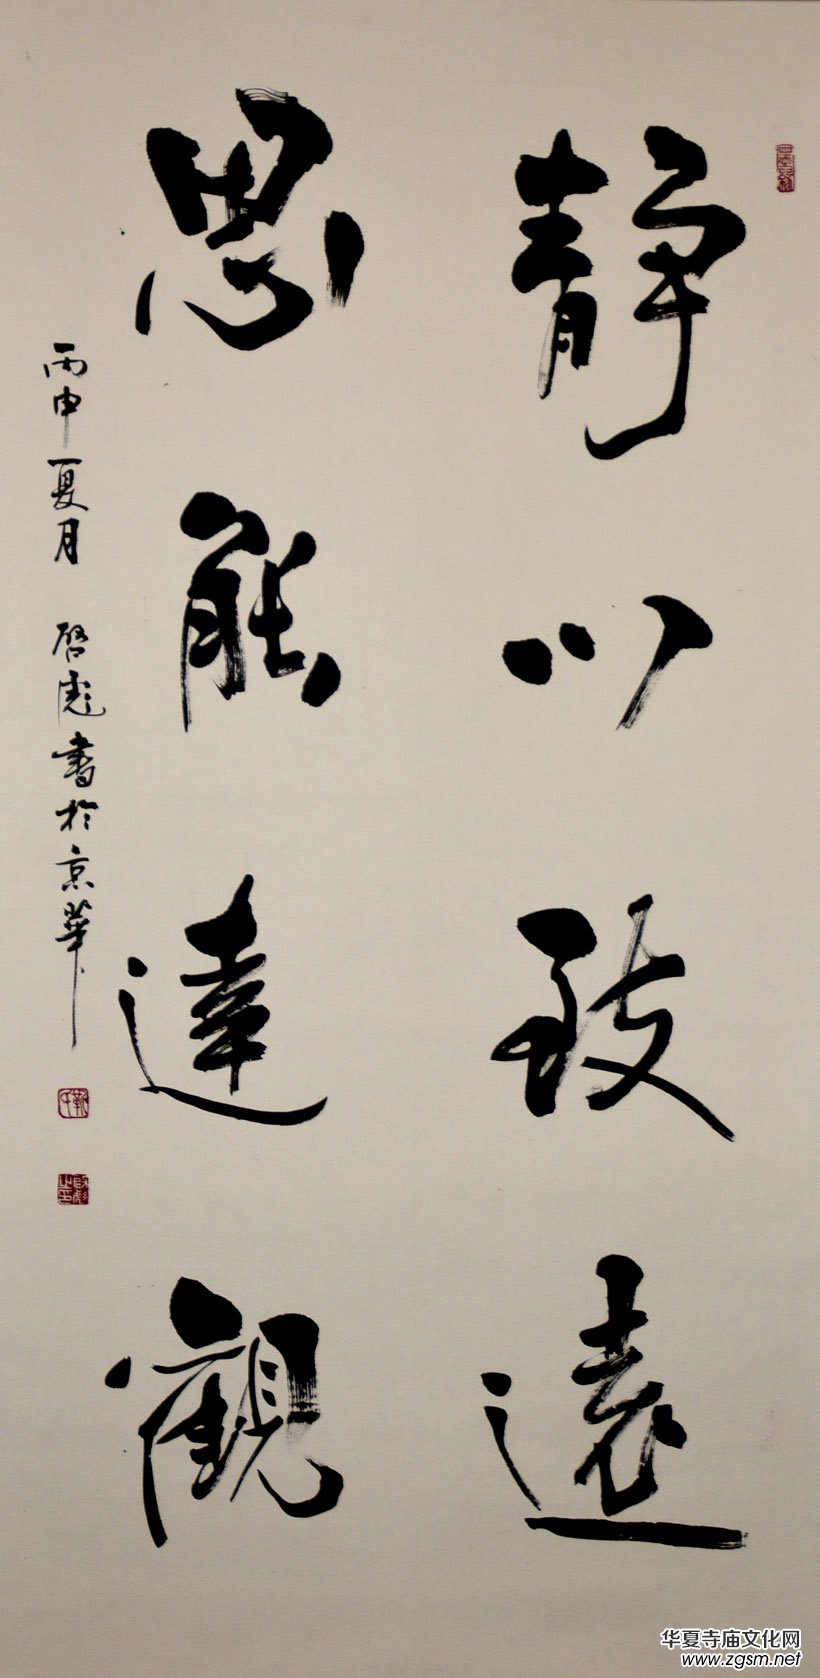 靜以致遠
思能達觀
丙申夏月 啓彪書於京華
靳氏
啟彪之印
华夏寺庙文化网
www.zgsm.net